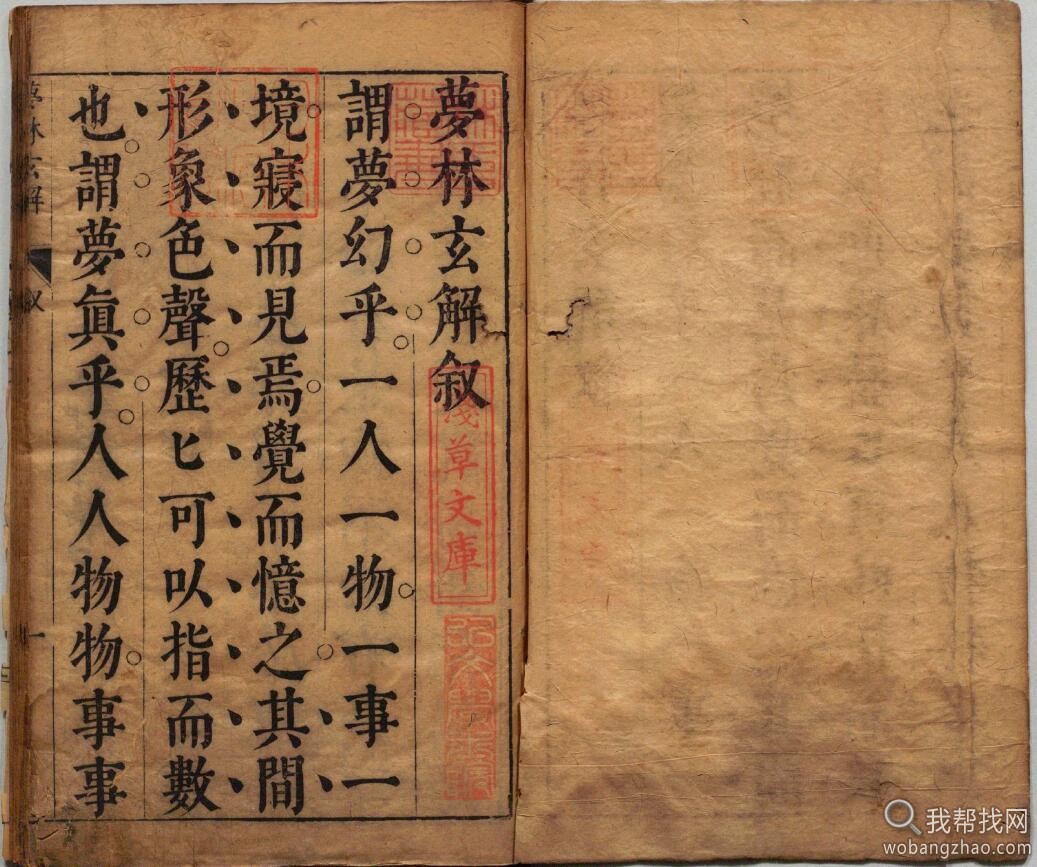 夢林玄解叙
謂夢幻乎一人一物一事一
境寢而見焉覺而憶之其間
形象色聲歷匕可以指而數
也謂夢眞乎人人物物事事
夢林玄解
叙
一
淺草文庫
我帮找网
wobangzhao.com